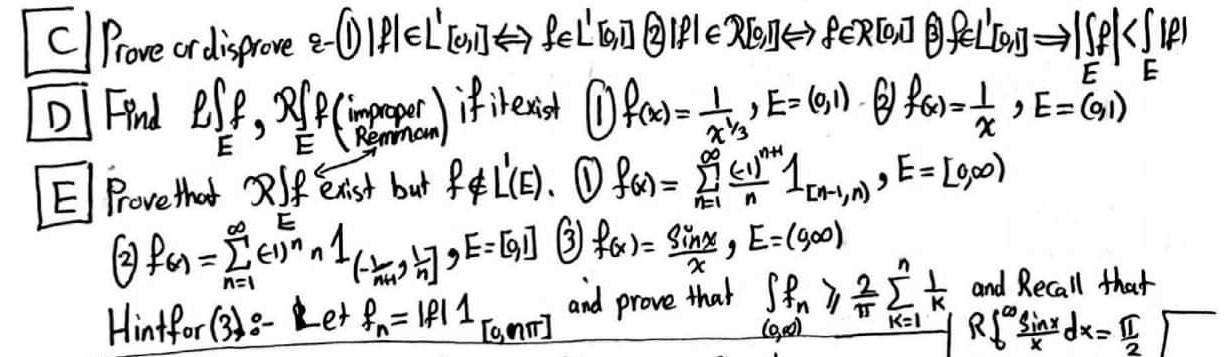 C Prove or disprove :- ① |f|∈L¹[0,1] ⇔ f∈L¹[0,1] ② |f|∈R[0,1] ⇔ f∈R[0,1] ③ f∈L¹[0,1] ⇒ |∫_E f| < ∫_E |f|
D Find L∫_E f, R∫_E f (improper Remmann) if it exist ① f(x) = 1/x^{1/3}, E = (0,1) . ② f(x) = 1/x, E = (0,1)
E Prove that R∫_E f exist but f∉L¹(E). ① f(x) = ∑_{n=1}^{∞} (-1)^{n+1}/n 1_{[n-1,n)}, E = [0,∞)
② f(x) = ∑_{n=1}^{∞} (-1)^n n 1_{(1/(n+1), 1/n]}, E = [0,1] ③ f(x) = sinx/x, E = (0,∞)
Hint for (3) :- Let f_n = |f| 1_{[0,nπ]} and prove that ∫_{(0,∞)} f_n ≥ 2/π ∑_{K=1}^{n} 1/K and Recall that
R∫_0^∞ sinx/x dx = π/2